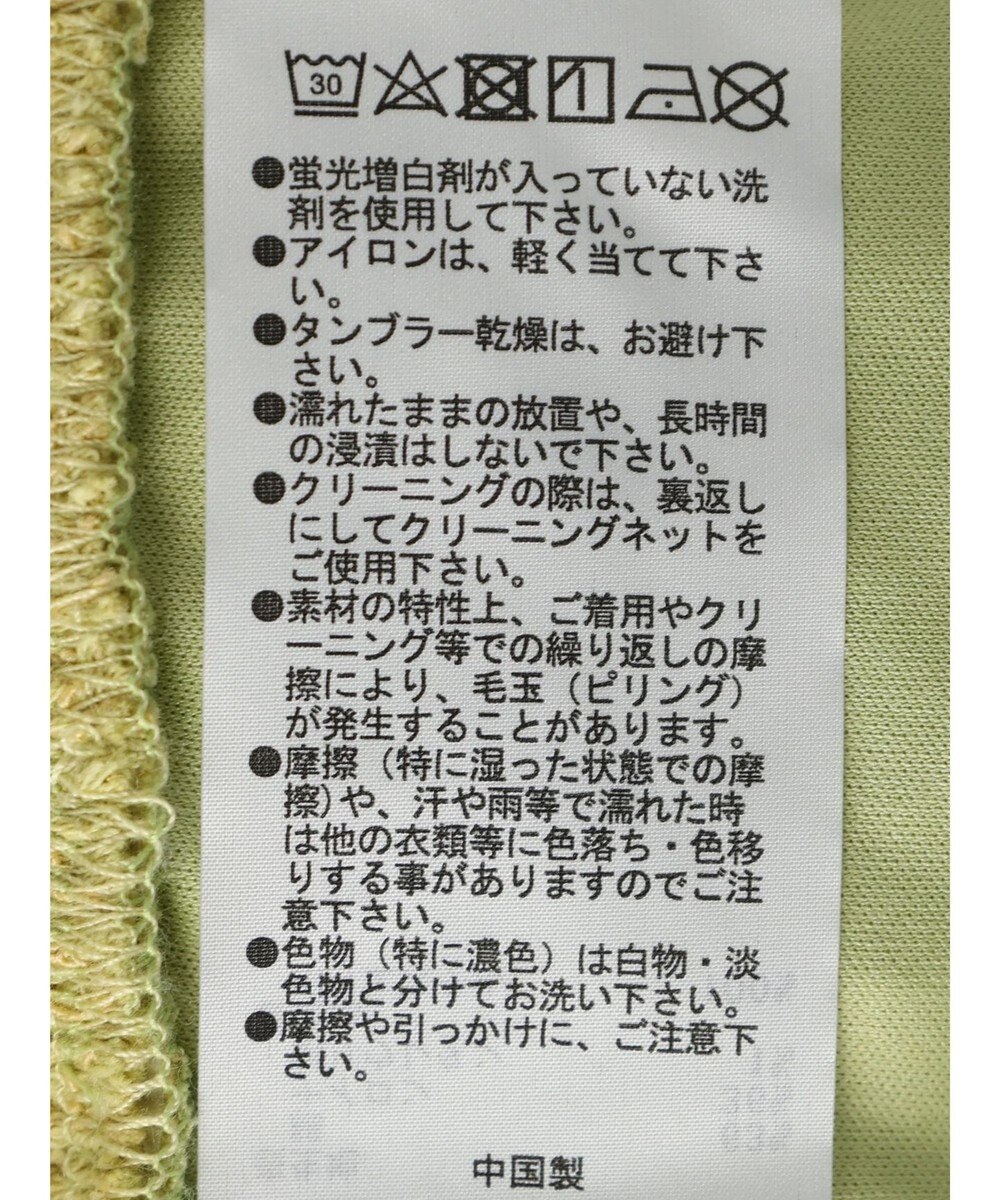 30
●蛍光増白剤が入っていない洗
剤を使用して下さい。
●アイロンは、軽く当てて下さ
い。
●タンブラー乾燥は、お避け下
さい。
●濡れたままの放置や、長時間
の浸漬はしないで下さい。
●クリーニングの際は、裏返し
にしてクリーニングネットを
ご使用下さい。
●素材の特性上、ご着用やクリ
ーニング等での繰り返しの摩
擦により、毛玉（ピリング）
が発生することがあります。
●摩擦（特に湿った状態での摩
擦)や、汗や雨等で濡れた時
は他の衣類等に色落ち・色移
りする事がありますのでご注
意下さい。
●色物（特に濃色）は白物・淡
色物と分けてお洗い下さい。
●摩擦や引っかけに、ご注意下
さい。
中国製